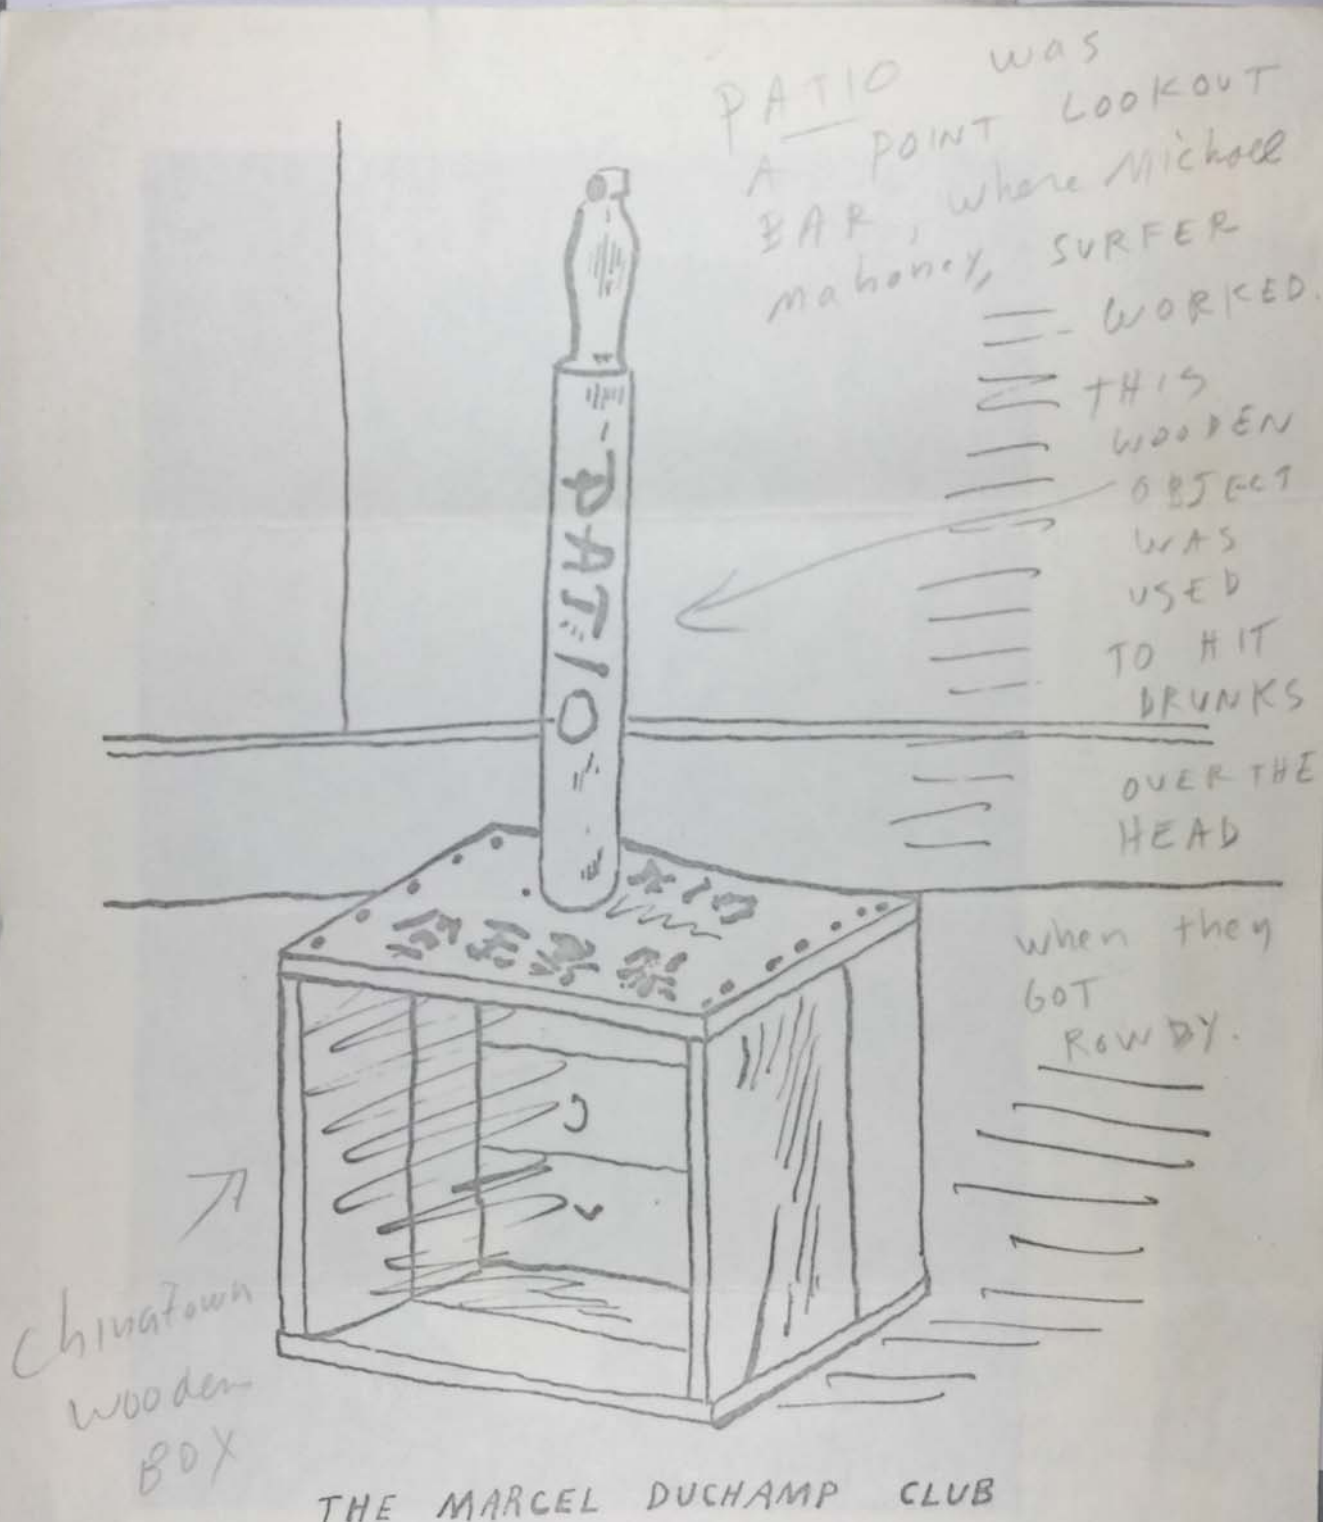 PATIO was
A POINT LOOKOUT
BAR, where Michael
Mahoney, SURFER
WORKED.
THIS
WOODEN
OBJECT
WAS
USED
TO HIT
DRUNKS
OVER THE
HEAD
when they
GOT
ROWDY.
PATIO
Chinatown
wooden
BOX
THE MARCEL DUCHAMP CLUB